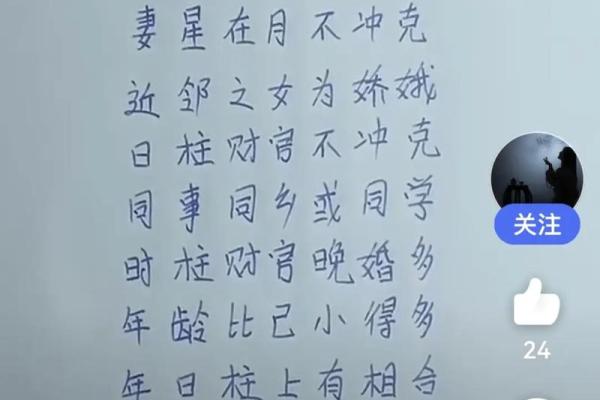 妻星在月不冲克
近邻之女为娇娥
日柱财官不冲克
同事同乡或同学
时柱财官晚婚多
年龄比己小得多
年日柱上有相合
关注
24